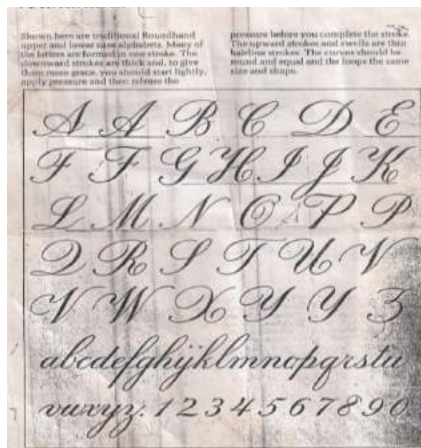 Shown here are traditional Roundhand
upper and lower case alphabets. Many of
the letters are formed in one stroke. The
downward strokes are thick and, to give
them more grace, you should start lightly,
apply pressure and then release the
pressure before you complete the stroke.
The upward strokes and swells are thin
hairline strokes. The curves should be
round and equal and the loops the same
size and shape.
A A B C D E
F F G H I J K
L M N O P P
Q R S T U V
V W X Y Y Z
abcdefghijklmnopqrstu
vwxyz. 1 2 3 4 5 6 7 8 9 0